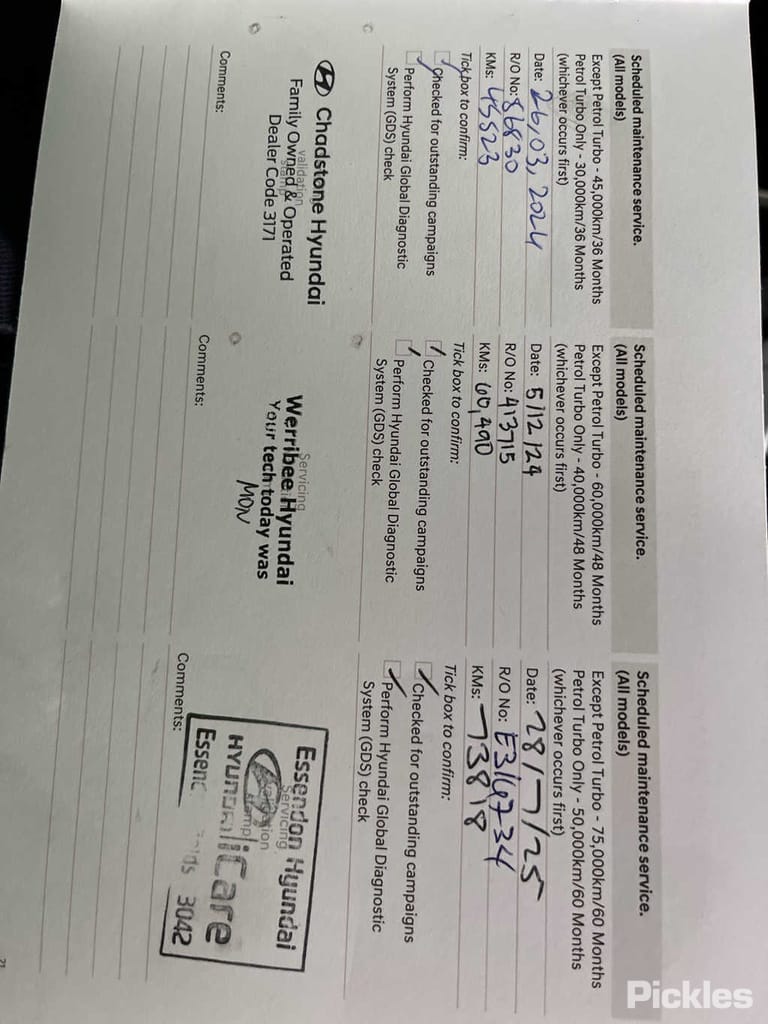 Scheduled maintenance service.
(All models)
Except Petrol Turbo - 45,000km/36 Months
Petrol Turbo Only - 30,000km/36 Months
(whichever occurs first)
Date: 26,03,2024
R/O No: 86830
KMs: 45523
Tick box to confirm:
Checked for outstanding campaigns
Perform Hyundai Global Diagnostic
System (GDS) check
Chadstone Hyundai
validation
Family Owned & Operated
stamp
Dealer Code 3171
Comments:
Scheduled maintenance service.
(All models)
Except Petrol Turbo - 60,000km/48 Months
Petrol Turbo Only - 40,000km/48 Months
(whichever occurs first)
Date: 5/12/24
R/O No: 413715
KMs: 60,490
Tick box to confirm:
Checked for outstanding campaigns
Perform Hyundai Global Diagnostic
System (GDS) check
Servicing
Werribee Hyundai
Your tech today was
MON
Comments:
Scheduled maintenance service.
(All models)
Except Petrol Turbo - 75,000km/60 Months
Petrol Turbo Only - 50,000km/60 Months
(whichever occurs first)
Date: 28/7/25
R/O No: E316734
KMs: 73818
Tick box to confirm:
Checked for outstanding campaigns
Perform Hyundai Global Diagnostic
System (GDS) check
Essendon Hyundai
Servicing
validation
stamp
HYUNDAI iCare
3042
Comments:
21
Pickles